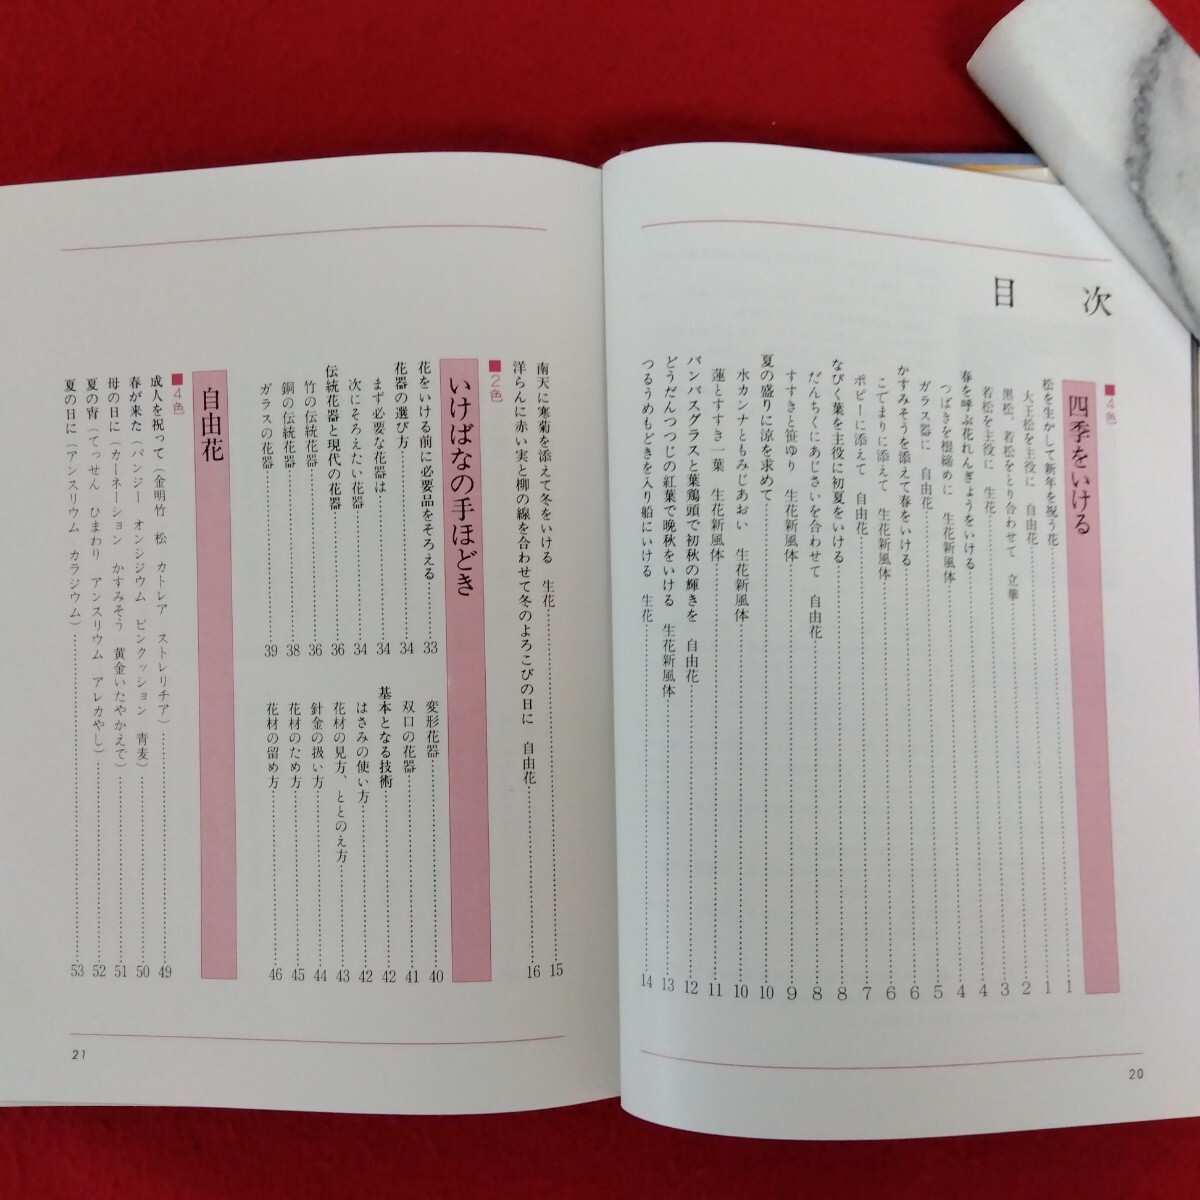 目次
■4色
四季をいける
松を生かして新年を祝う花……1
大王松を主役に　自由花……1
黒松、若松をとり合わせて　立華……2
若松を主役に　生花……3
春を呼ぶ花れんぎょうをいける……4
つばきを根締めに　生花新風体……4
ガラス器に　自由花……5
かすみそうを添えて春をいける……6
こでまりに添えて　生花新風体……6
ポピーに添えて　自由花……7
なびく葉を主役に初夏をいける……8
だんちくにあじさいを合わせて　自由花……8
すすきと笹ゆり　生花新風体……9
夏の盛りに涼を求めて……10
水カンナともみじあおい　生花新風体……10
蓮とすすき一葉　生花新風体……11
パンパスグラスと葉鶏頭で初秋の輝きを　自由花……12
どうだんつつじの紅葉で晩秋をいける　生花新風体……13
つるうめもどきを入り船にいける　生花……14
20
南天に寒菊を添えて冬をいける　生花……15
洋らんに赤い実と柳の線を合わせて冬のよろこびの日に　自由花……16
■2色
いけばなの手ほどき
花をいける前に必要品をそろえる……33
花器の選び方……34
まず必要な花器は……34
次にそろえたい花器……34
伝統花器と現代の花器……36
竹の伝統花器……36
銅の伝統花器……38
ガラスの花器……39
変形花器……40
双口の花器……41
基本となる技術……42
はさみの使い方……42
花材の見方、ととのえ方……43
針金の扱い方……44
花材のため方……45
花材の留め方……46
自由花
■4色
成人を祝って（金明竹　松　カトレア　ストレリチア）……49
春が来た（パンジー　オンシジウム　ピンクッション　青麦）……50
母の日に（カーネーション　かすみそう　黄金いたやかえで）……51
夏の宵（てっせん　ひまわり　アンスリウム　アレカやし）……52
夏の日に（アンスリウム　カラジウム）……53
21